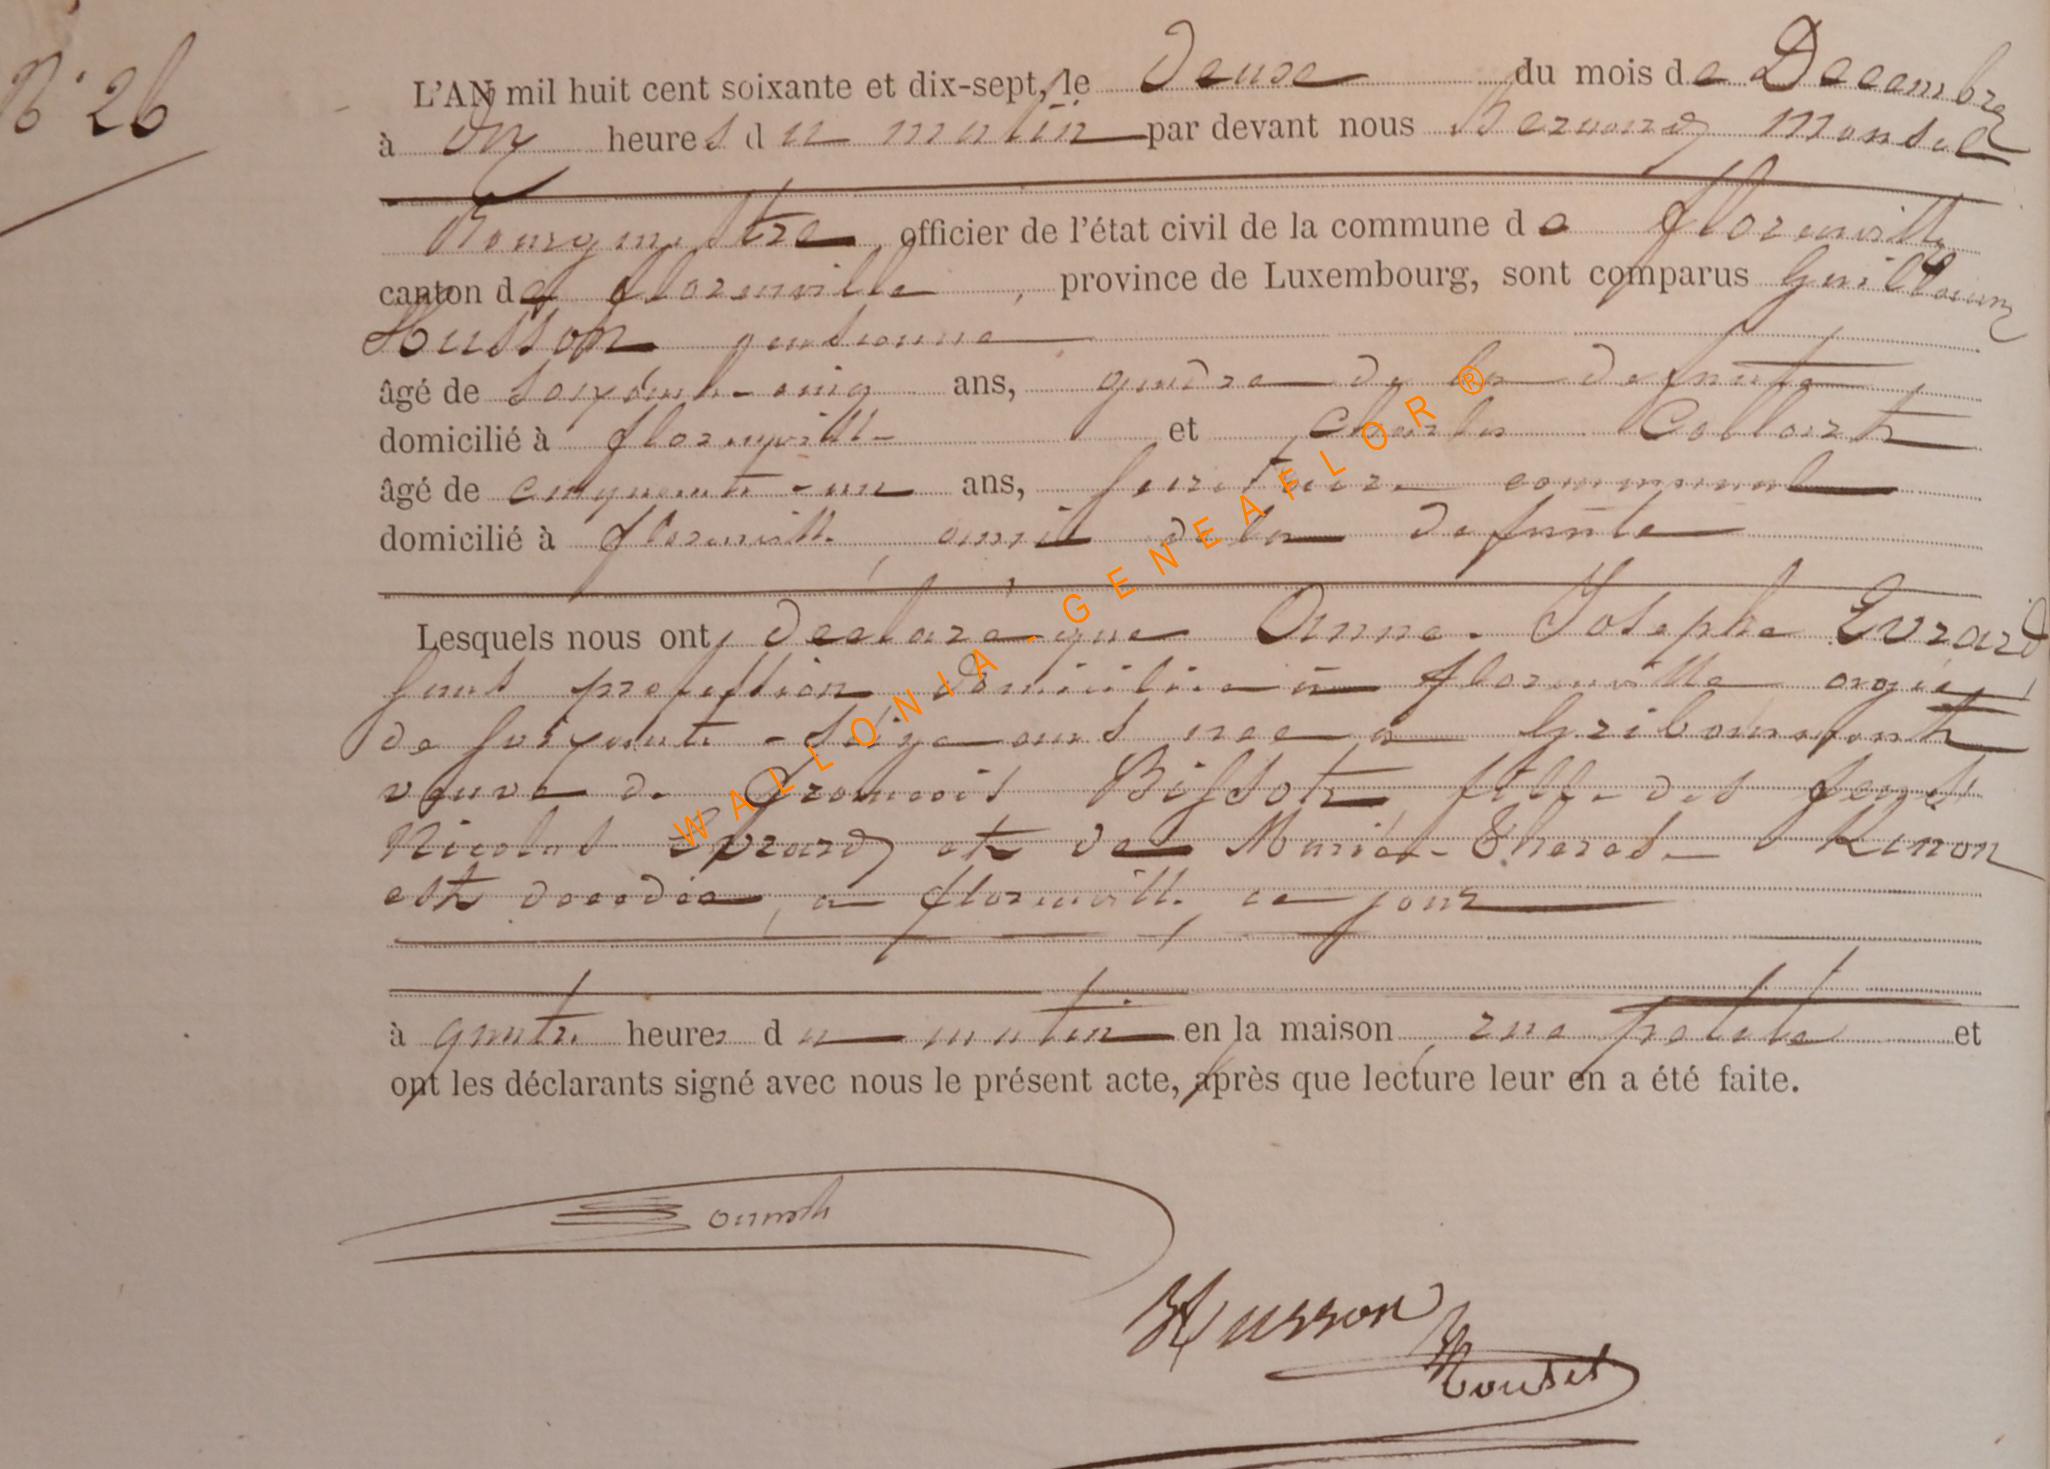 N° 26
L'AN mil huit cent soixante et dix-sept, le Douze du mois de Decembre
à dix heures du matin par devant nous Bernard Mousel
Bourgmestre, officier de l'état civil de la commune de florenville
canton de florenville, province de Luxembourg, sont comparus Guillaume
Husson pensionné
âgé de soixante-cinq ans, gendre de la defunte,
domicilié à florenville et Charles Collart
âgé de cinquante-un ans, secretaire communal
domicilié à florenville, ami de la defunte
Lesquels nous ont déclaré que Anne-Josephe Evrard
sans profession domiciliée à florenville agée
de soixante-seize ans née à Gribomont
veuve de François Bissot, fille des feus
Nicolas Evrard et de Marie-Therese Kinon
est decedée, à florenville, ce jour
à quatre heures du matin en la maison, rue petite et
ont les déclarants signé avec nous le présent acte, après que lecture leur en a été faite.
Husson
WALLONIA-GENEAFLOR®